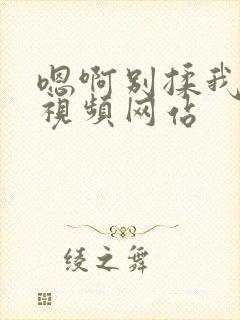 嗯啊别揉我
视频网佔
绫之舞